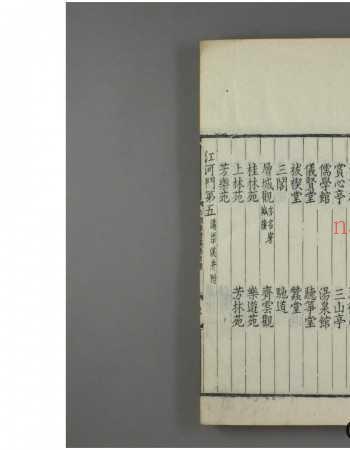 賞心亭 三山亭
儒學館 湯泉館
儀賢堂 聽箏堂
祓禊堂 蠶堂
三閣 馳道
層城觀 齊雲觀
桂林苑 樂遊苑
上林苑 芳林苑
芳樂苑
江河門第五